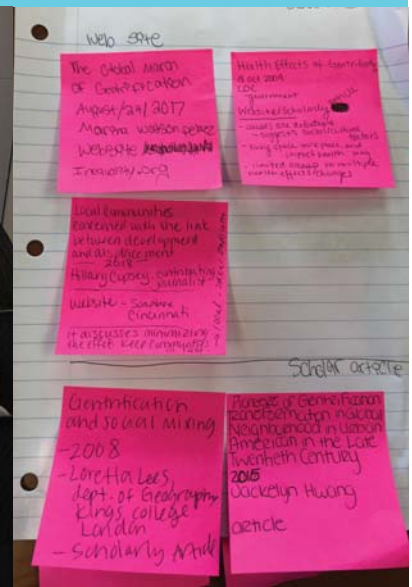 Web site
The Global March
of Gentrification
August/29/2017
Martha Watson
Website
Inequality.org
Health Effects of Gentrification
15 Oct 2009
CDC
government
Website/Scholarly
- causes are debatable
- suggests social/cultural factors
- living space, work place, and
impact health
- limited access to multiple
health effects/changes
Local Communities
concerned with the link
between development
and displacement
2018
Hillary Copsey, contributing
journalist
website - Soapbox
Cincinnati
it discusses minimizing
the effect keep communities
Scholar article
Gentrification
and social mixing
- 2008
- Loretta Lees,
dept. of Geography,
Kings college
London
- Scholarly Article
Pioneers of Gentrification
Transformation in Global
Neighborhood in Urban
American in the Late
Twentieth Century
2015
Jackelyn Hwang
article